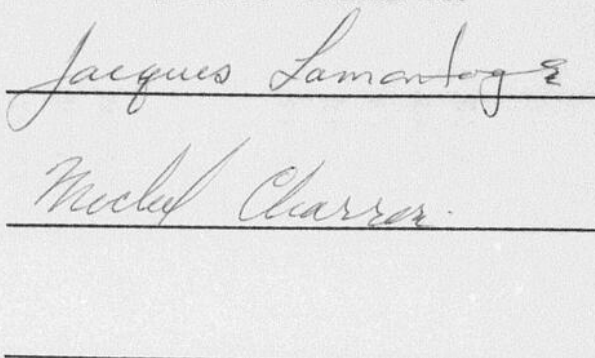 Jacques Lamontagne
Michel Charron.